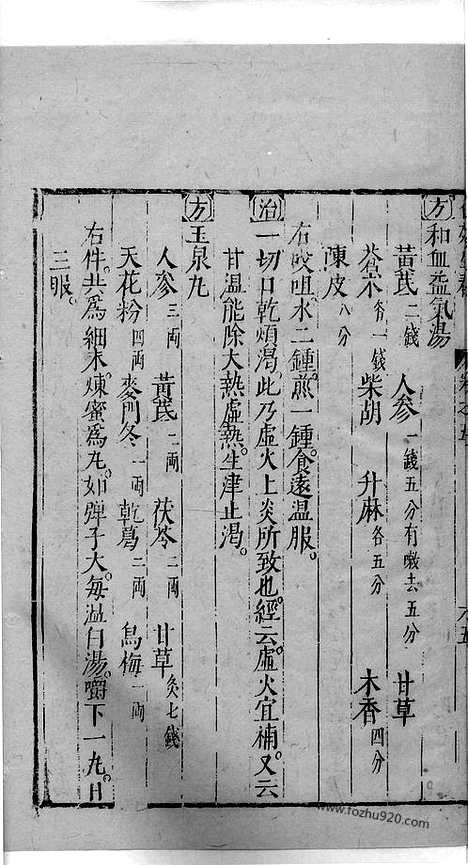 方 和血益氣湯
黃芪二錢 人參一錢五分有嗽去五分 甘草
蒼朮各一錢 柴胡 升麻各五分 木香四分
陳皮八分
右㕮咀水二鍾煎一鍾食遠温服。
治 一切口乾煩渴此乃虛火上炎所致也。經云虛火宜補。又云
甘温能除大熱虛熱。生津止渴。
方 玉泉丸
人參三兩 黃芪二兩 茯苓二兩 甘草炙七錢
天花粉四兩 麥門冬一兩 乾葛二兩 烏梅一兩
右件共爲細末煉蜜爲丸如彈子大每溫白湯嚼下一丸。日
三服。
www.fozhu920.com